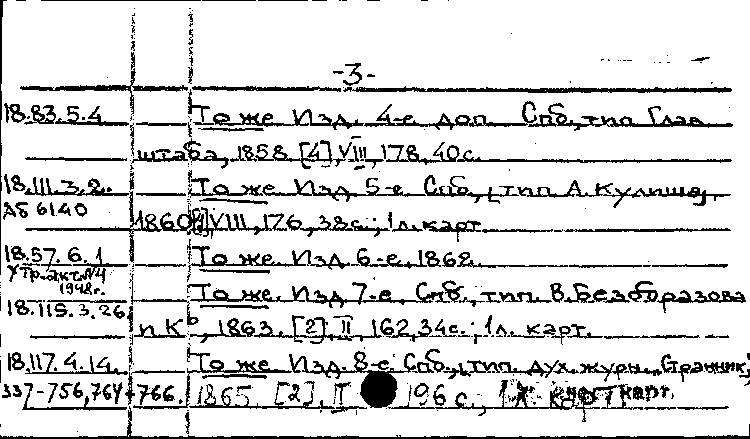 -3-
18.83.5.4 То же Изд. 4-е доп. Спб., тип. Глав.
штаба, 1858. [4], VIII, 178, 40 с.
18.111.3.2. То же Изд. 5-е Спб., тип. А. Кулиша,
Аб 6140 1860. [4] VIII, 176, 38 с.; 1 л. карт.
18.57.6.1 То же. Изд. 6-е, 1862.
Утр. акт. №4
1948 г. То же. Изд. 7-е. Спб., тип. В. Безобразова
18.115.3.26. и Кº, 1863. [2], II, 162, 34 с.; 1 л. карт.
18.117.4.14. То же Изд. 8-е Спб., тип. дух. журн. „Странник",
337-756, 764+766. 1865. [2], II 196 с., карт.